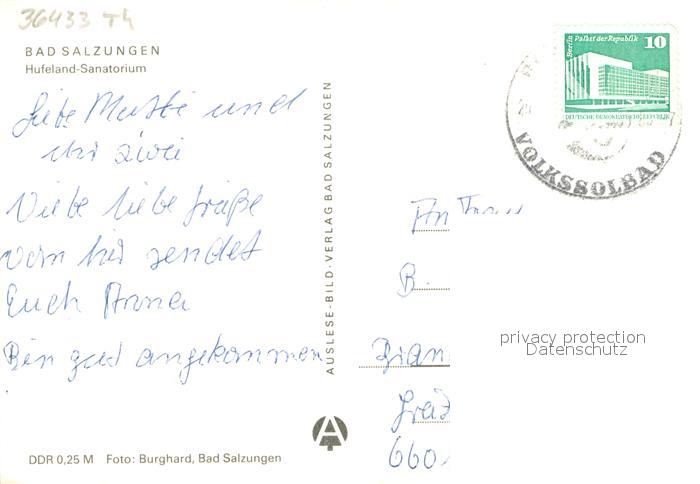 36433 Th
BAD SALZUNGEN
Hufeland-Sanatorium
Liebe Mutti und
ihr zwei
Viele liebe Grüße
von hir sendet
Euch Anna
Bin gut angekommen
DDR 0,25 M Foto: Burghard, Bad Salzungen
AUSLESE-BILD-VERLAG BAD SALZUNGEN
Berlin Palast der Republik
10
DEUTSCHE DEMOKRATISCHE REPUBLIK
VOLKSSOLBAD
An
B.
660
privacy protection
Datenschutz